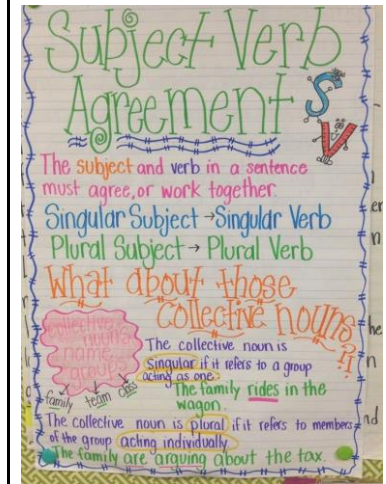 Subject Verb
Agreement
S
V
The subject and verb in a sentence
must agree, or work together.
Singular Subject → Singular Verb
Plural Subject → Plural Verb
What about those
collective nouns?!
collective
nouns
name
groups
family
team
class
The collective noun is
singular if it refers to a group
acting as one.
The family rides in the
wagon.
The collective noun is plural if it refers to members
of the group acting individually.
The family are arguing about the tax.